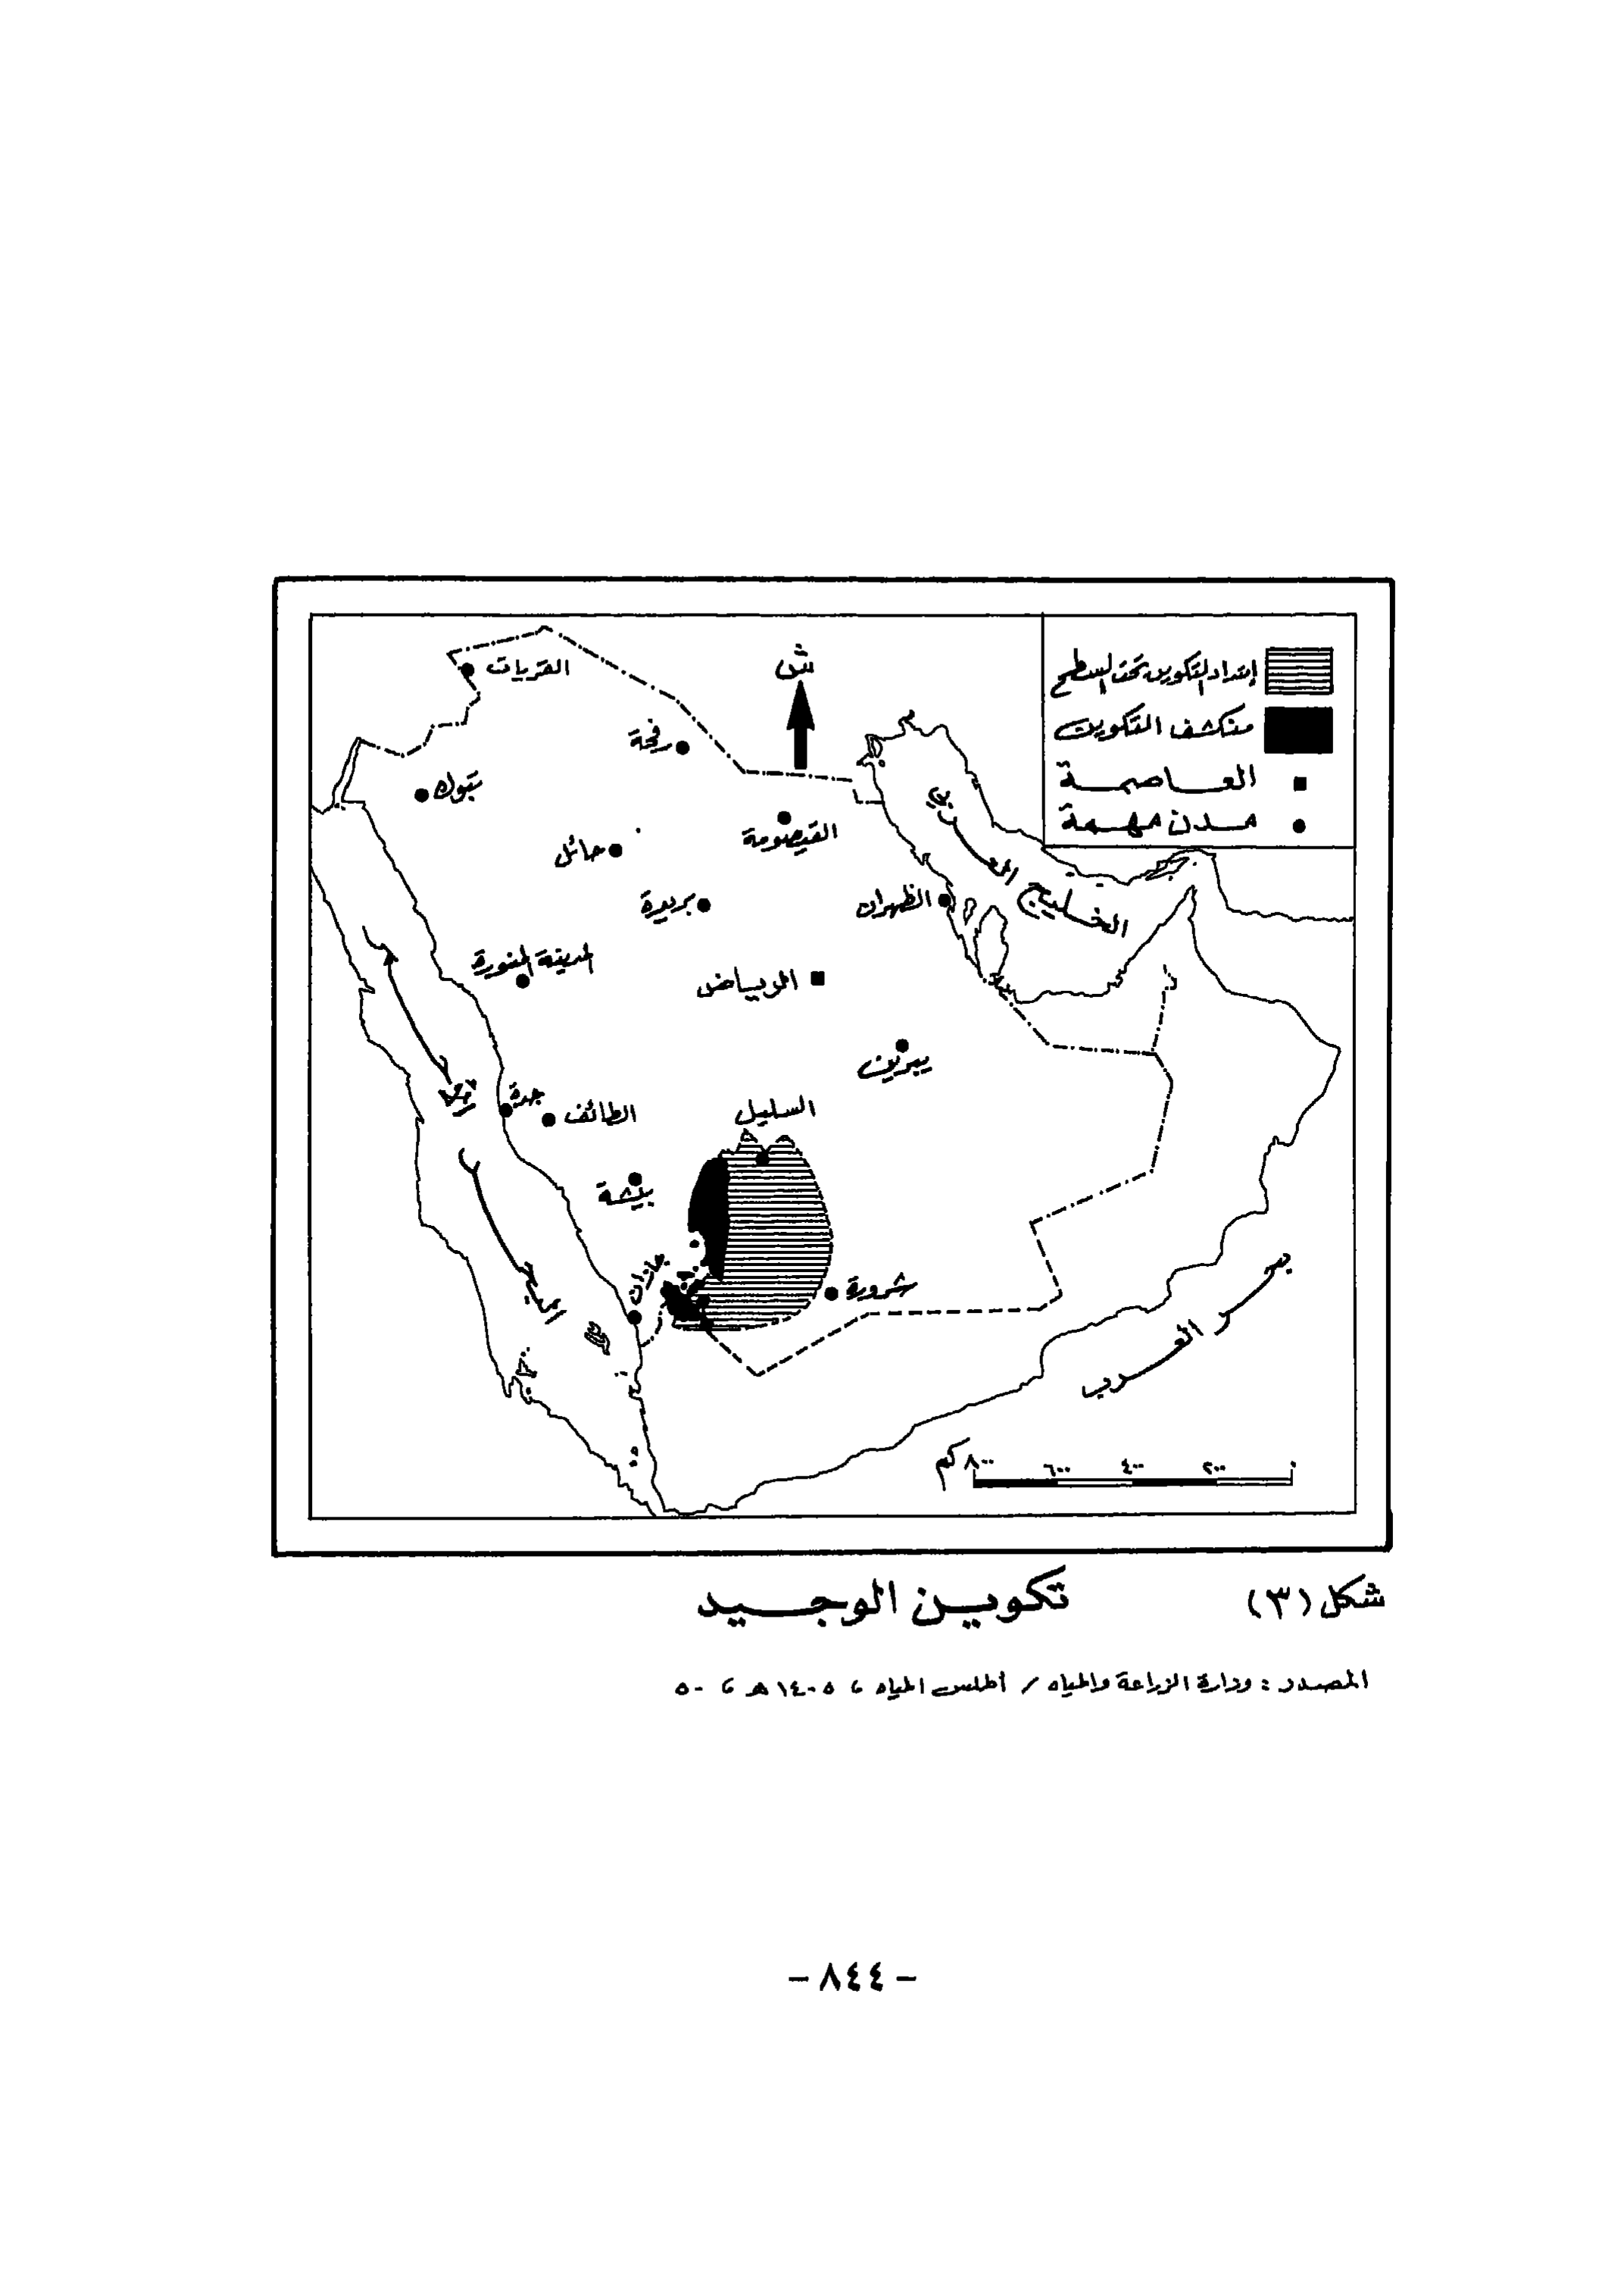 إمتداد التكوين تحت السطح
منكشف التكوين
العاصمة
مدن مهمة
ش
القريات
رفحة
تبوك
القيصومة
حائل
بريدة
الظهران
الخليج العربي
المدينة المنورة
الرياض
يبرين
جدة
الطائف
السليل
بيشة
جازان
شرورة
البحر الأحمر
بحر العرب
٠ ٢٠٠ ٤٠٠ ٦٠٠ ٨٠٠ كم
شكل (٣) تكوين الوجيد
المصدر : وزارة الزراعة والمياه / أطلس المياه ، ١٤٠٥ هـ ، ٥٠
- ٨٤٤ -